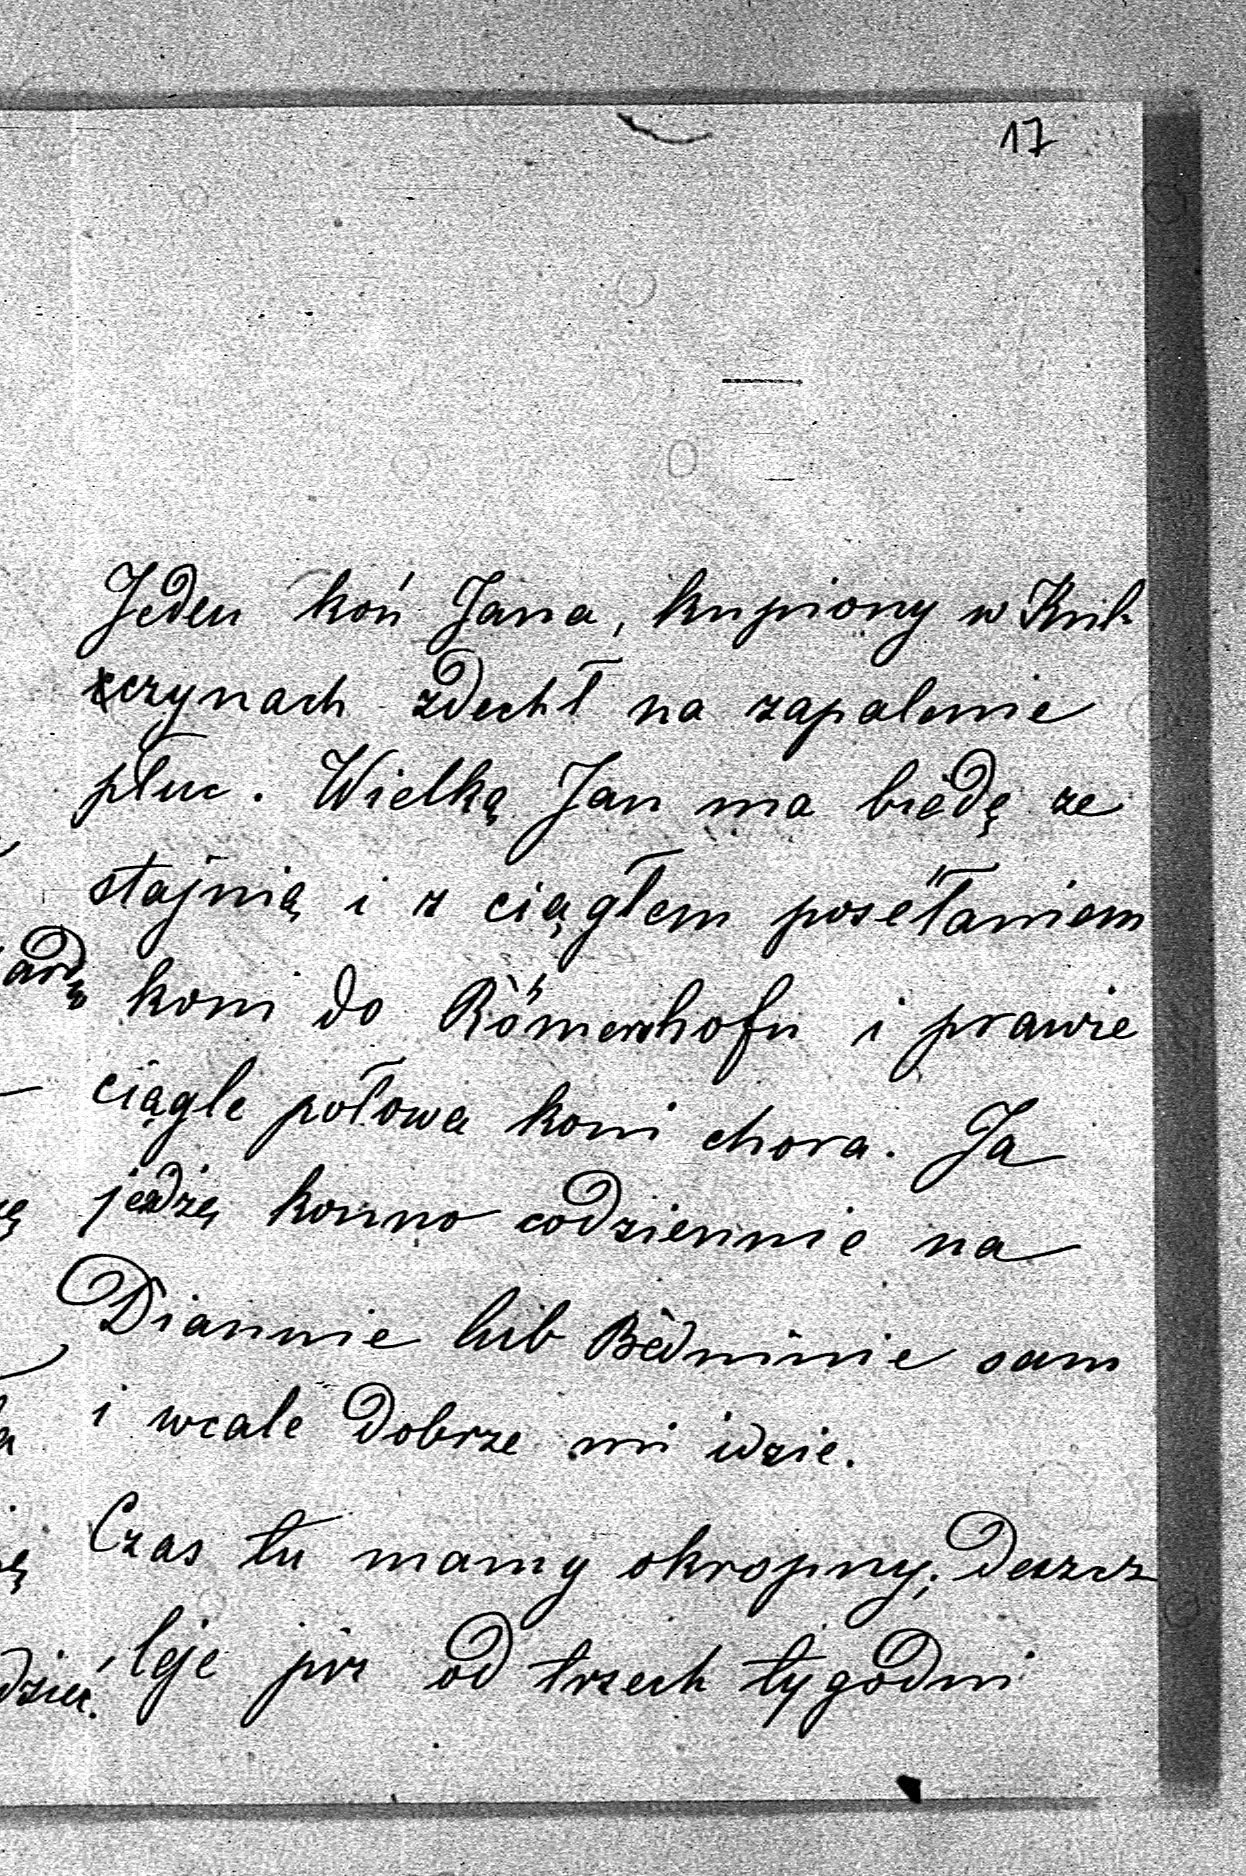 17
Jeden koń Jana, kupiony w Kruk-
czynach zdechł na zapalenie
płuc. Wielką Jan ma biédę ze
stajnią i z ciągłem poséłaniem
koni do Römershofu i prawie
ciągle połowa koni chora. Ja
jeżdżę konno codziennie na
Diannie lub Bèdninie sam
i wcale dobrze mi idzie.
Czas tu mamy okropny; deszcz
leje już od trzech tygodni